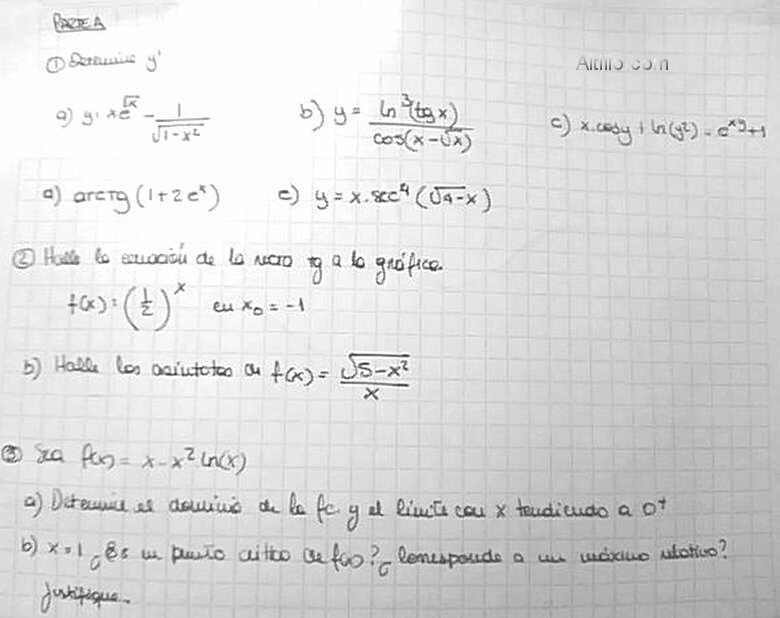 PARTE A
① Determine y'
a) y = x e^√x - 1/√(1-x²)    b) y = ln³(tg x)/cos(x-√x)    c) x.cosy + ln(y²) = e^xy + 1
d) arctg (1+2e^x)    e) y = x.sec⁴(√4-x)
② Halle la ecuación de la recta tg a la gráfica.
f(x) = (1/2)^x en x₀ = -1
b) Halle las asíntotas de f(x) = √(5-x²)/x
③ Sea f(x) = x - x² ln(x)
a) Determine el dominio de la fc. y el límite con x tendiendo a 0⁺
b) x = 1 ¿Es un punto crítico de f(x)? ¿Corresponde a un máximo relativo?
Justifique.